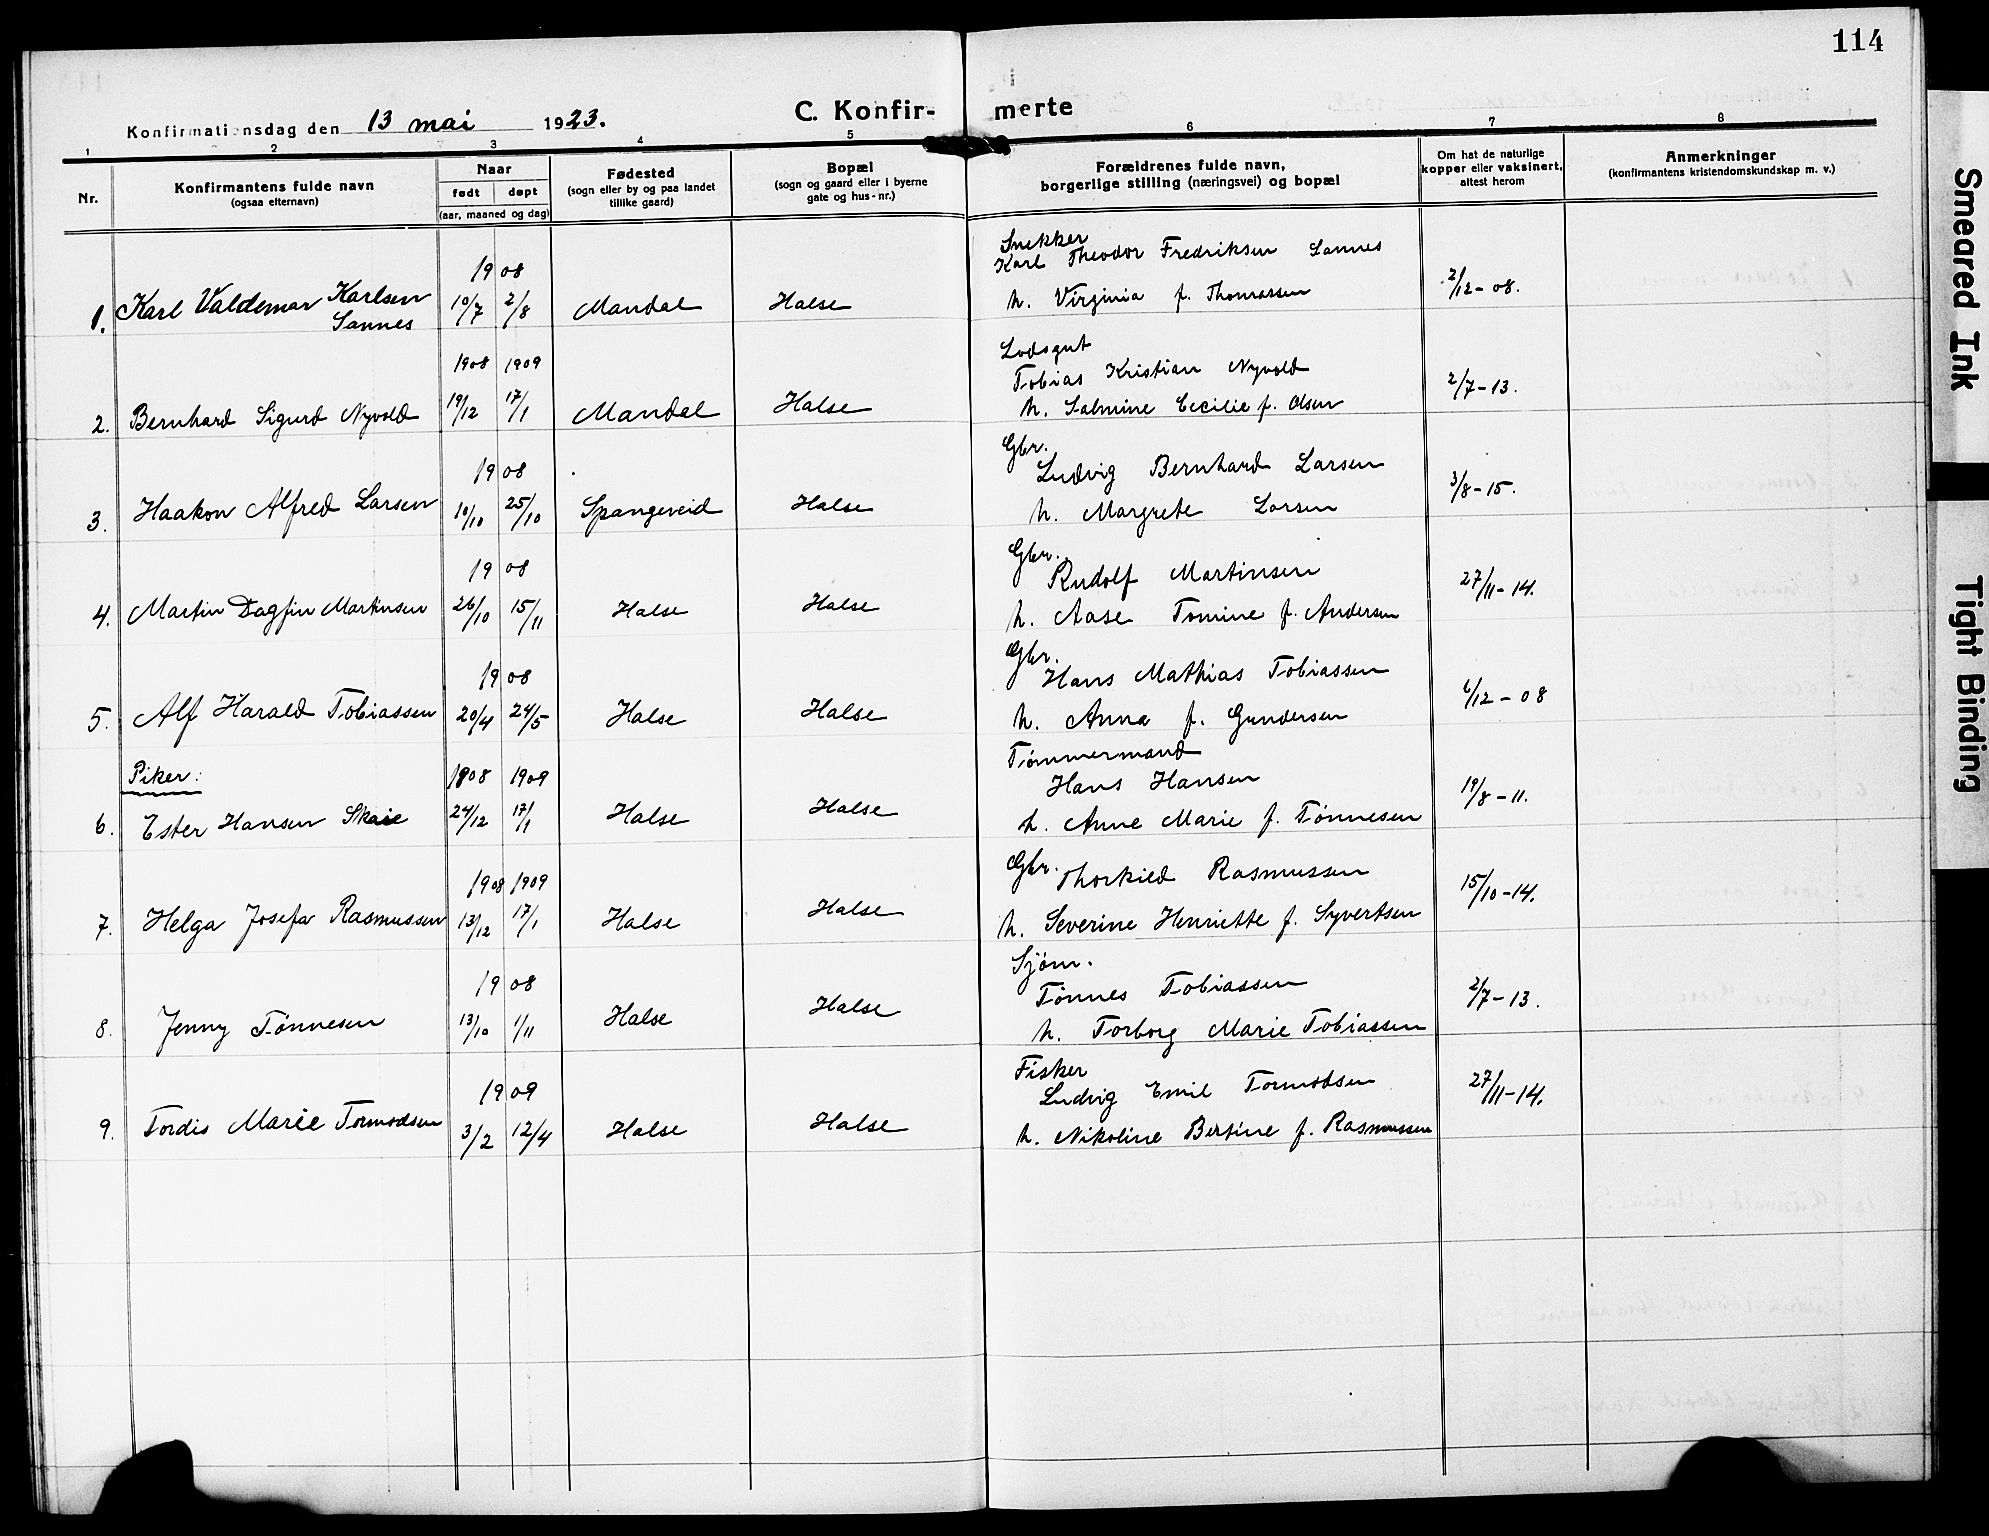 114
C. Konfir- merte
Konfirmationsdag den 13 mai 1923.
1 2 3 4 5 6 7 8
Nr.
Konfirmantens fulde navn
(ogsaa efternavn)
Naar
født døpt
(aar, maaned og dag)
Fødested
(sogn eller by og paa landet
tillike gaard)
Bopæl
(sogn og gaard eller i byerne
gate og hus-nr.)
Forældrenes fulde navn,
borgerlige stilling (næringsvei) og bopæl
Om hat de naturlige
kopper eller vaksinert,
attest herom
Anmerkninger
(konfirmantens kristendomskundskap m. v.)
Snekker
19 08 Karl Theodor Fredriksen Sannes
1. Karl Valdemar Karlsen 10/7 2/8 Mandal Halse h. Virginia f. Thomassen 2/12-08.
Sannes
1908 1909 Lodsgut
Tobias Kristian Nyvold
2. Bernhard Sigurd Nyvold 19/12 17/1 Mandal Halse h. Salmine Cecilie f. Olsen 2/7-13.
Gbr.
19 08 Ludvig Bernhard Larsen
3. Haakon Alfred Larsen 10/10 25/10 Spangereid Halse h. Margrete Larsen 3/8-15.
Gbr.
19 08 Rudolf Martinsen
4. Martin Dagfin Martinsen 26/10 15/11 Halse Halse h. Aase Tomine f. Andersen 27/11-14.
Gbr.
19 08 Hans Mathias Tobiassen
5. Alf Harald Tobiassen 20/4 24/5 Halse Halse h. Anna f. Gundersen /12-08
Tømmermand
Piker: 1908 1909 Hans Hansen
6. Ester Hansen Skaie 24/12 17/1 Halse Halse h. Anne Marie f. Tønnesen 19/8-11.
Gbr.
1908 1909 Thorkild Rasmussen
7. Helga Josefa Rasmussen 13/12 17/1 Halse Halse h. Severine Henriette f. Syvertsen 15/10-14.
Sjøm.
19 08 Tønnes Tobiassen
8. Jenny Tønnesen 13/10 1/11 Halse Halse h. Torborg Marie Tobiassen 2/7-13.
Fisker
19 09 Ludvig Emil Tormodsen
9. Tordis Marie Tormodsen 3/2 12/4 Halse Halse h. Nikoline Bertine f. Rasmussen 27/11-14.
Smeared Ink
Tight Binding